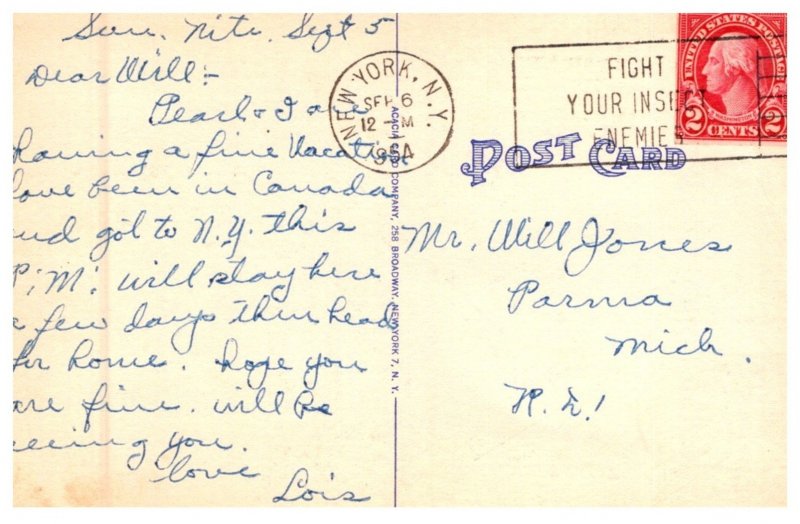 Sun. Nite. Sept 5
Dear Will:-
Pearl & I are
having a fine Vacation
have been in Canada
and got to N.Y. this
P.M. will stay here
a few days then head
for home. hope you
are fine. will be
seeing you.
love
Lois
NEW YORK, N.Y.
SEP 6
12 - M
1954
FIGHT
YOUR INSECT
ENEMIES
UNITED STATES POSTAGE
WASHINGTON
2 CENTS 2
POST CARD
ACACIA CARD COMPANY, 258 BROADWAY, NEW YORK 7, N. Y.
Mr. Will Jones
Parma
Mich.